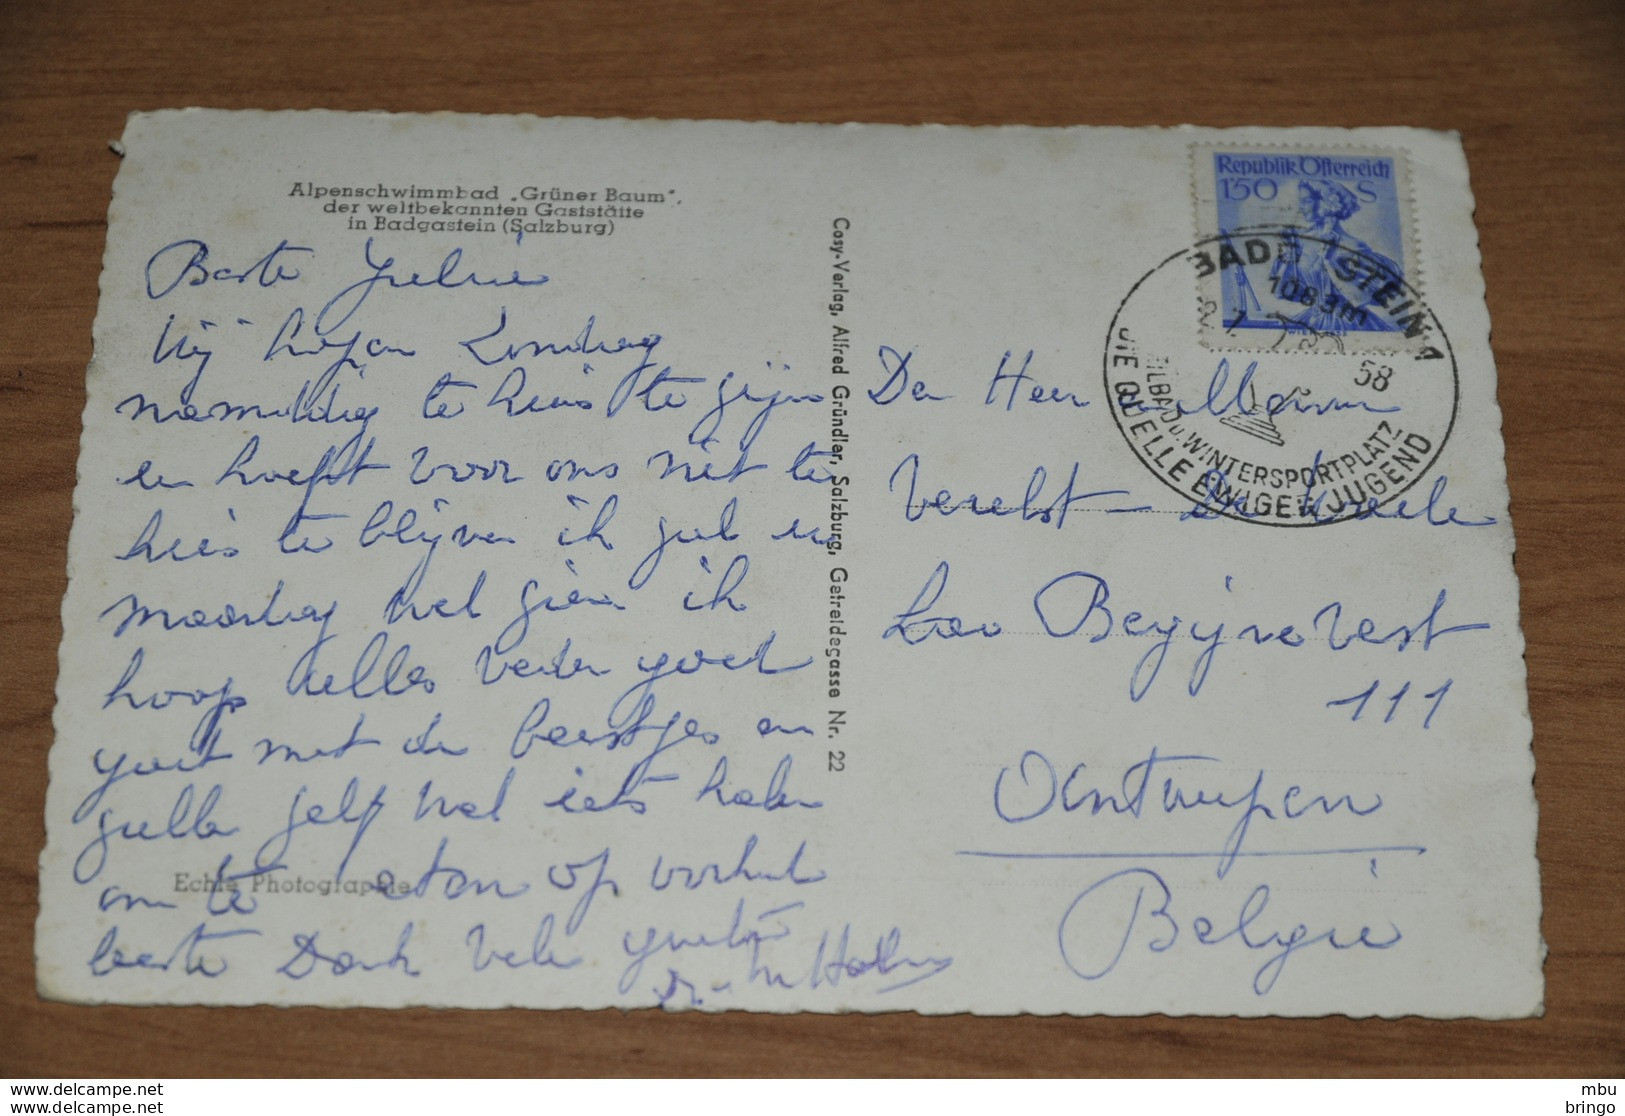 Alpenschwimmbad „Grüner Baum",
der weltbekannten Gaststätte
in Badgastein (Salzburg)
Beste
Wij hopen Zondag
namiddag te huis te zijn
en hoeft voor ons niet te
huis te blijven ik zal u
Maandag wel zien ik
hoop alles verder goed
gaat met de beestjes en
zulle zelf wel iets halen
om te eten op voorhand
beste Dank Vele groeten
Echte Photographie
Cosy-Verlag, Alfred Gründler, Salzburg, Getreidegasse Nr. 22
Republik Österreich
1'50 S
BADGASTEIN 1
1083m
58
HEILBAD u. WINTERSPORTPLATZ
DIE QUELLE EWIGER JUGEND
Den Heer
Verelst -
Begijnevest
111
Antwerpen
België
delcampe.net
delcampe.net
mbu
bringo